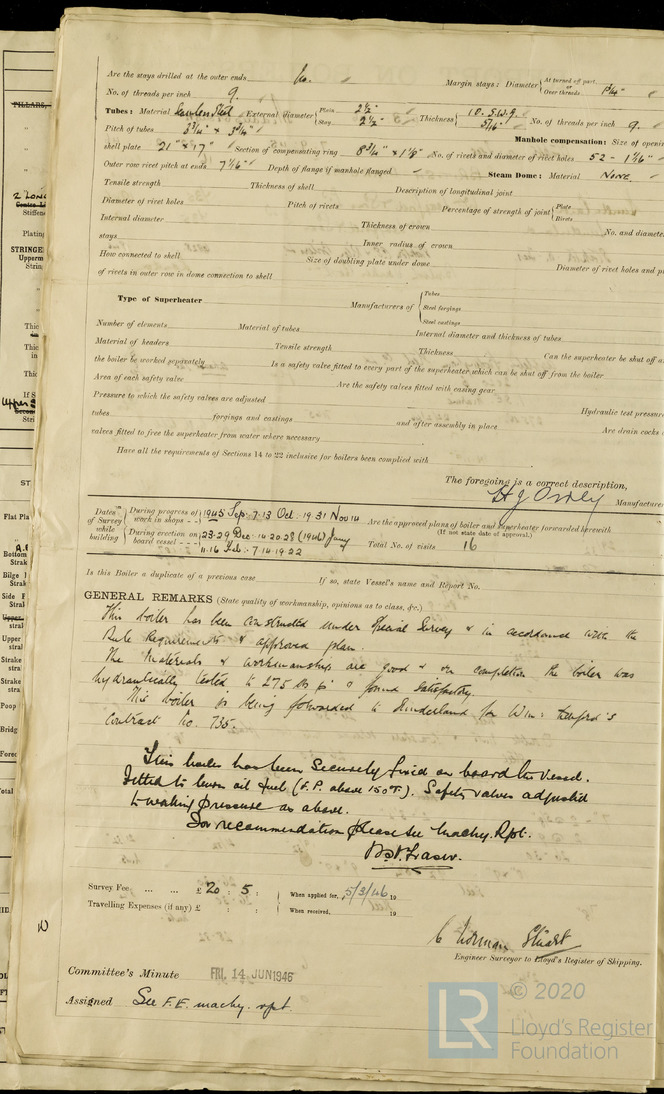 Are the stays drilled at the outer ends No. Margin stays: Diameter { At turned off part, or Over threads 1¾"
No. of threads per inch 9.
Tubes: Material Seamless Steel External diameter { Plain 2½" Stay 2½" Thickness { 10. S.W.G. 5/16" No. of threads per inch 9.
Pitch of tubes 3¾" x 3¾" Manhole compensation: Size of openi
shell plate 21" x 17" Section of compensating ring 8¾" x 1⅛" No. of rivets and diameter of rivet holes 52 - 1 1/16"
Outer row rivet pitch at ends 7 7/16" Depth of flange if manhole flanged Steam Dome: Material NONE
Tensile strength Thickness of shell Description of longitudinal joint
Diameter of rivet holes Pitch of rivets Percentage of strength of joint { Plate Rivets
Internal diameter Thickness of crown No. and diamete
stays Inner radius of crown
How connected to shell Size of doubling plate under dome Diameter of rivet holes and p
of rivets in outer row in dome connection to shell
Type of Superheater Manufacturers of { Tubes Steel forgings Steel castings
Number of elements Material of tubes Internal diameter and thickness of tubes
Material of headers Tensile strength Thickness Can the superheater be shut off a
the boiler be worked separately Is a safety valve fitted to every part of the superheater which can be shut off from the boiler
Area of each safety valve Are the safety valves fitted with easing gear
Pressure to which the safety valves are adjusted Hydraulic test pressure
tubes forgings and castings and after assembly in place Are drain cocks
valves fitted to free the superheater from water where necessary
Have all the requirements of Sections 14 to 22 inclusive for boilers been complied with
The foregoing is a correct description,
Manufacturer
Dates of Survey while building { During progress of work in shops - - } 1945 Sep. 7.13 Oct. 19 31 Nov 14
{ During erection on board vessel - - - } 23.29 Dec. 14 20.28 (1946) Jany 11.16 Feb. 7.14.19.22
Are the approved plans of boiler and superheater forwarded herewith (If not state date of approval.)
Total No. of visits 16
Is this Boiler a duplicate of a previous case If so, state Vessel's name and Report No.
GENERAL REMARKS (State quality of workmanship, opinions as to class, &c.)
This boiler has been constructed under Special Survey & in accordance with the
Rule Requirements & approved plan.
The Materials & workmanship are good & on completion the boiler was
hydraulically tested to 275 lbs & found satisfactory.
This boiler is being forwarded to Sunderland for Wm:
Contract No. 735.
This boiler has been securely fixed on board the vessel.
Fitted to burn oil fuel (F.P. above 150°F.). Safety valves adjusted
to working pressure as above.
For recommendation please see Machy. Rpt.
Fraser.
Survey Fee ... ... £ 20 : 5 : When applied for, 5/3/46 19
Travelling Expenses (if any) £ : : When received, 19
C Norman Stuart
Engineer Surveyor to Lloyd's Register of Shipping.
Committee's Minute FRI. 14 JUN 1946
Assigned See F.E. machy. rpt.
LR © 2020
Lloyd's Register
Foundation